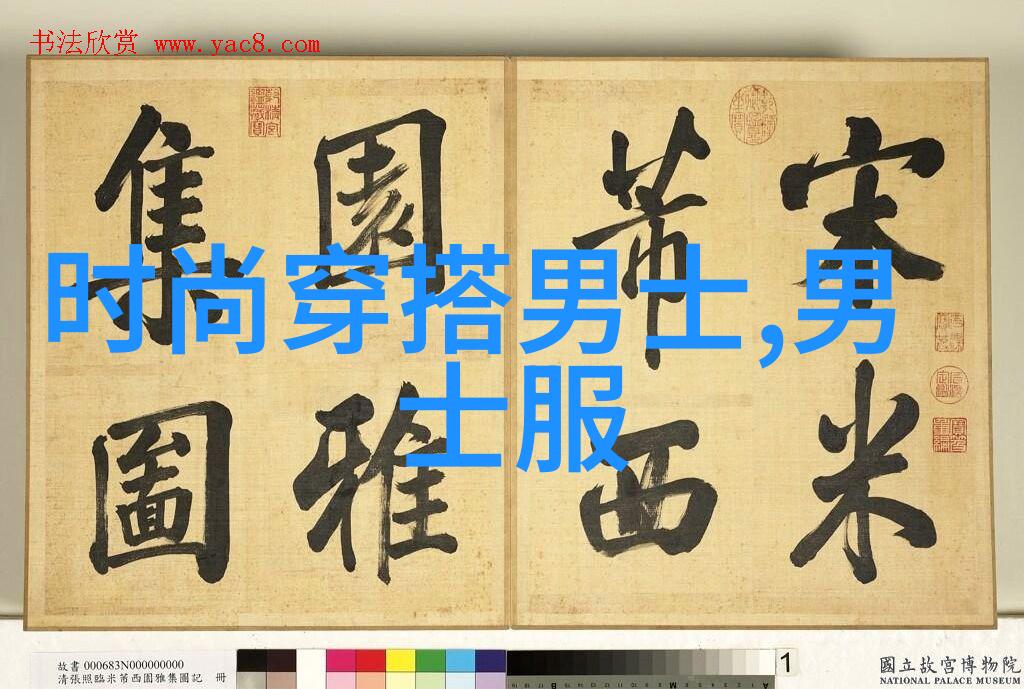 书法欣赏 www.yac8.com
宋米
芾西
園雅
集圖
时尚穿搭男士,男
士服
故書 000683N000000000
清張照臨米芾西園雅集圖記 冊
1
國立故宮博物院
NATIONAL PALACE MUSEUM